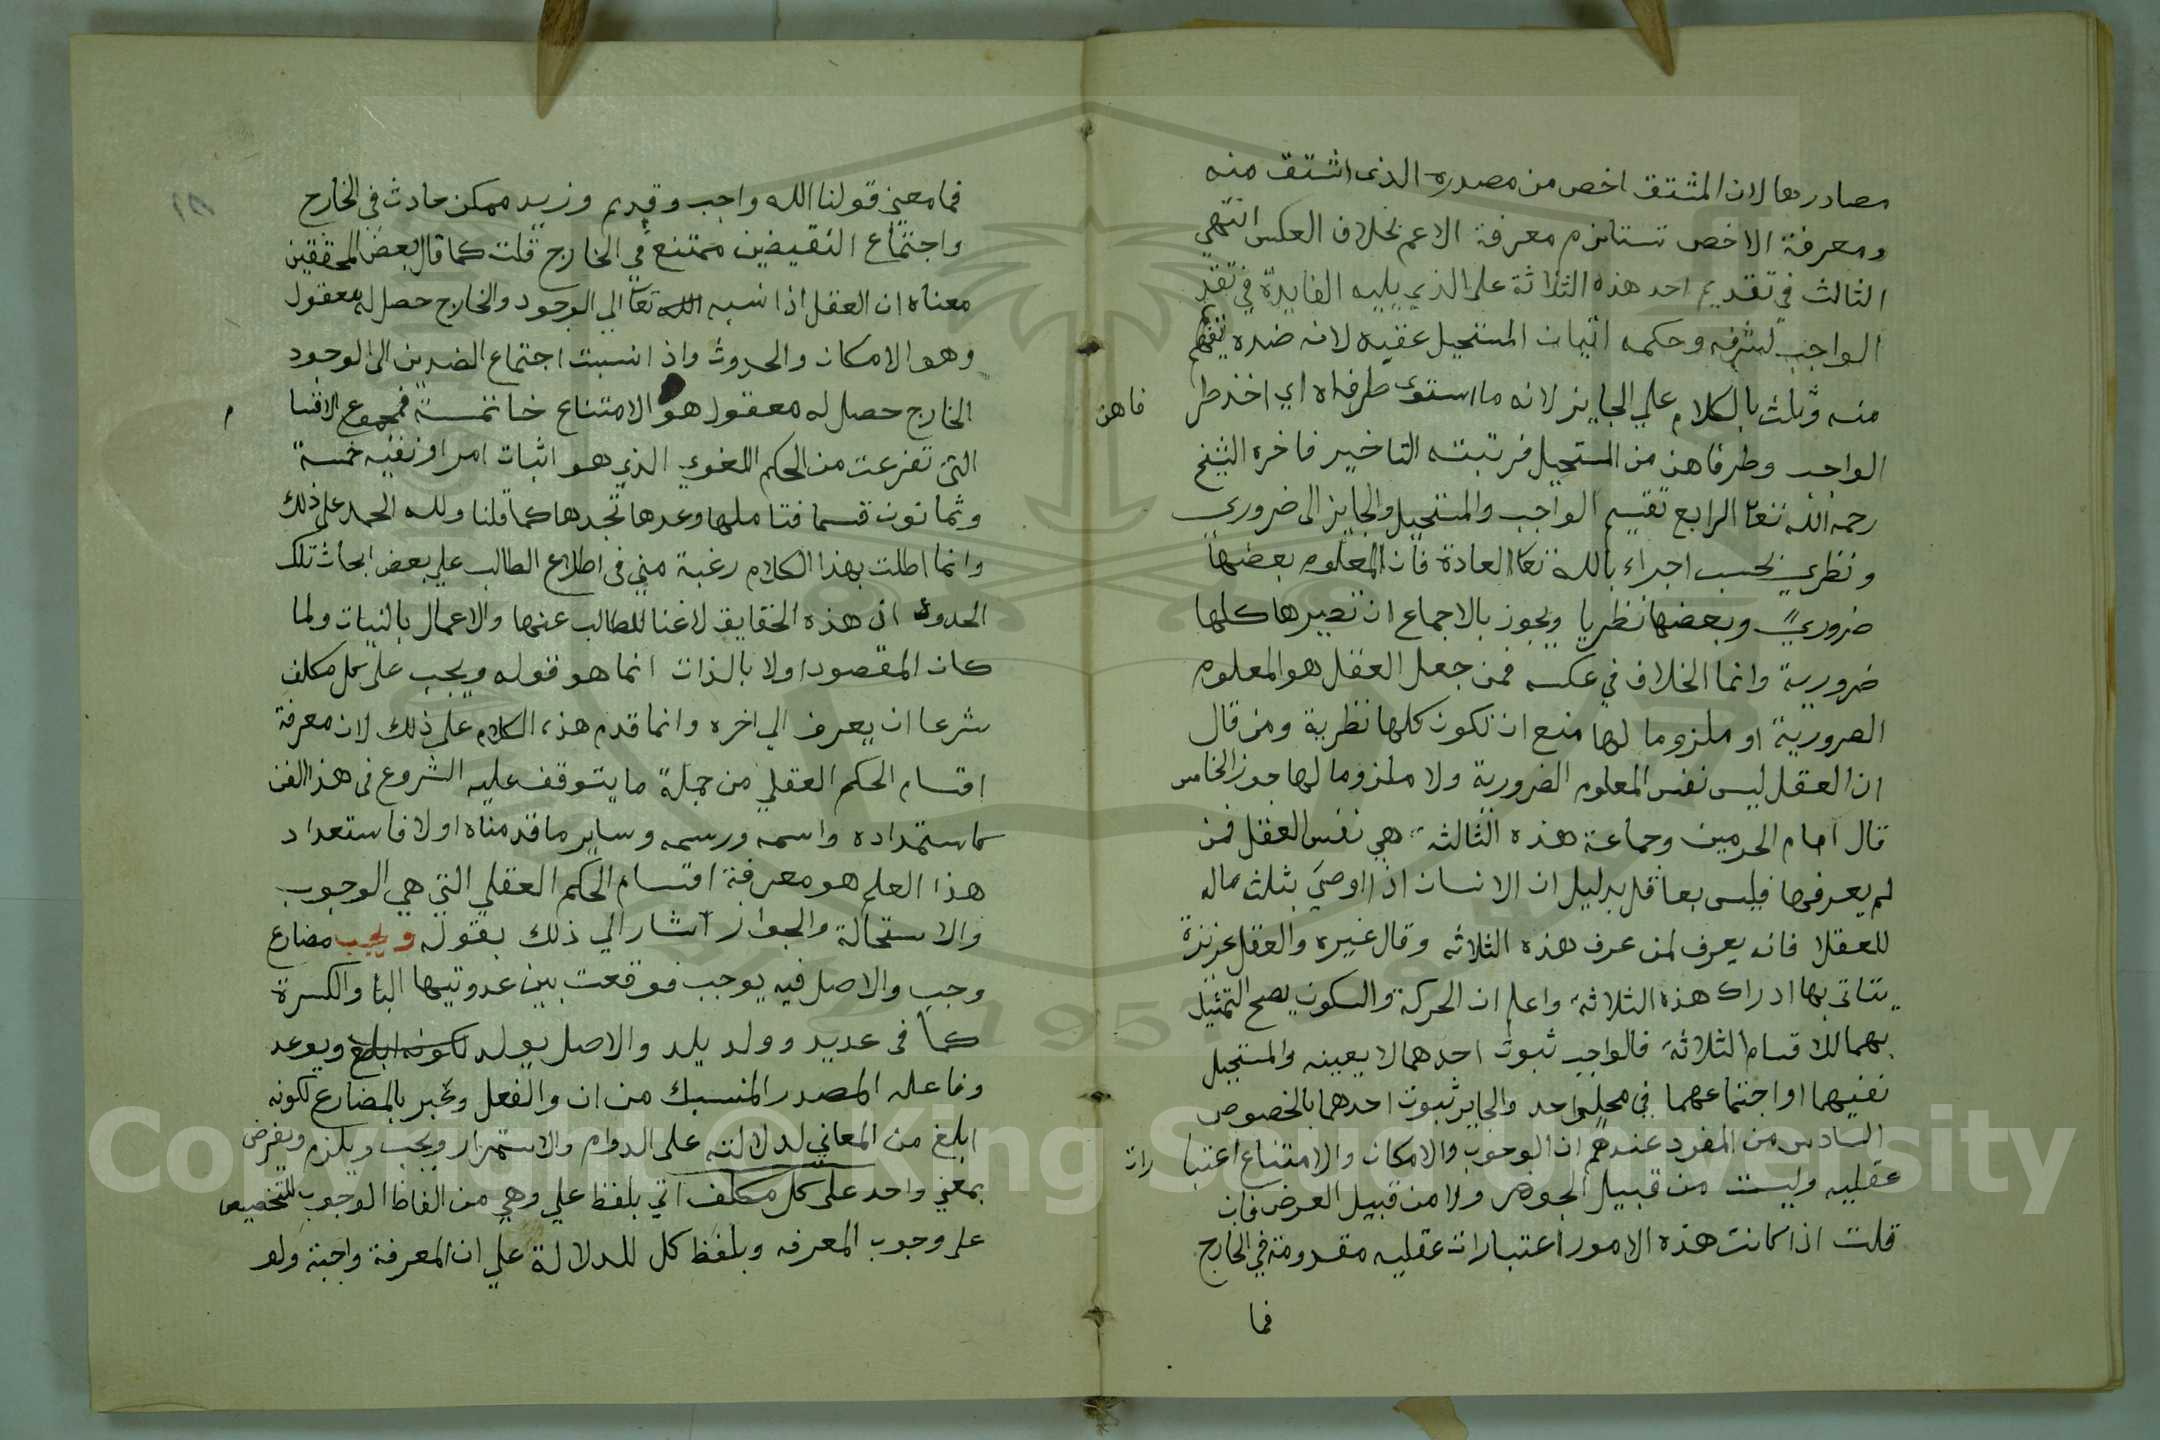 مصادرها لان المشتق اخص من مصدره الذى اشتق منه
ومعرفة الاخص تستلزم معرفة الاعم بخلاف العكس انتهى
الثالث في تقديم احد هذه الثلاثة على الذي يليه الفايدة في تقد
الواجب لشرفه وحكمه اثبات المستحيل عقبه لانه ضده يفهم
منه وثلث بالكلام علي الجايز لانه ما استوى طرفاه اي اخذ طر
فا من
الواجب وطرفا من المستحيل فرتبته التاخير فاخره الشيخ
رحمه الله تعا الرابع تقسيم الواجب والمستحيل والجايز الى ضروري
ونظري بحسب اجراء بالله تعا العادة فان المعلوم بعضها
ضروري وبعضها نظريا ويجوز بالاجماع ان تصيرها كلها
ضرورية وانما الخلاف في عكسه فمن جعل العقل هو المعلوم
الضرورية او ملزوما لها منع ان تكون كلها نظرية ومن قال
ان العقل ليس نفس المعلوم الضرورية ولا ملزوما لها جوز الخامس
قال امام الحرمين وجماعة هذه الثالثة هي نفس العقل فمن
لم يعرفها فليس بعاقل بدليل ان الانسان اذا اوصي بثلث ماله
للعقلا فانه يعرف لمن عرف هذه الثلاثه وقال غيره والعقل غريزة
يتاتى بها ادراك هذه الثلاثة واعلم ان الحركة والسكون يصح التمثيل
بهما للاقسام الثلاثة فالواجب ثبوت احدهما لا بعينه والمستحيل
نفيهما او اجتماعهما في محل واحد والجايز ثبوت احدهما بالخصوص
السادس من المفرد عندهم ان الوجوب والامكان والامتناع اعتبا
رات
عقليه وليست من قبيل الجوهر ولا من قبيل العرض فان
قلت اذا كانت هذه الامور اعتبارات عقليه مقدومة في الخارج
فما
فما معني قولنا الله واجب وقديم وزيد ممكن حادث في الخارج
واجتماع النقيضين ممتنع في الخارج قلت كما قال بعض المحققين
معناه ان العقل اذا نسبه الله تعا الي الوجود والخارج حصل له معقول
وهو الامكان والحدوث واذا نسبت اجتماع الضدين الى الوجود
الخارج حصل له معقول هو الامتناع خاتمة فمجموع الاقسا
م
التى تفرعت من الحكم اللغوي الذي هو اثبات امر او نفيه خمسة
وثمانون قسما فتاملها وعدها تجدها كما قلنا ولله الحمد على ذلك
وانما اطلت بهذا الكلام رغبة مني في اطلاع الطالب علي بعض ابحاث تلك
الحدود اذ هذه الحقايق لا غنا للطالب عنها والاعمال بالنيات ولما
كان المقصود اولا بالذات انما هو قوله ويجب على كل مكلف
شرعا ان يعرف الي اخره وانما قدم هذا الكلام على ذلك لان معرفة
اقسام الحكم العقلي من جملة ما يتوقف عليه الشروع في هذا الفن
كاستمداده واسمه ورسمه وساير ما قدمناه اولا فاستعداد
هذا العلم هو معرفة اقسام الحكم العقلي التي هي الوجوب
والاستحالة والجواز اشار الي ذلك بقوله ويجب مضارع
وجب والاصل فيه يوجب فوقعت بين عدوتيها اليا والكسرة
كما في عديد وولد يلد والاصل يولد لكونه ابلغ ويوعد
وفاعله المصدر المنسبك من ان والفعل وعبر بالمضارع لكونه
ابلغ من المعاني لدلالته على الدوام والاستمرار ويجب ويلزم ويفرض
بمعني واحد على كل مكلف اتي بلفظ علي وهي من الفاظ الوجوب للتخصيص
على وجوب المعرفه وبلفظ كل للدلالة علي ان المعرفة واجبة ولو
Copyright © King Saud University
1957